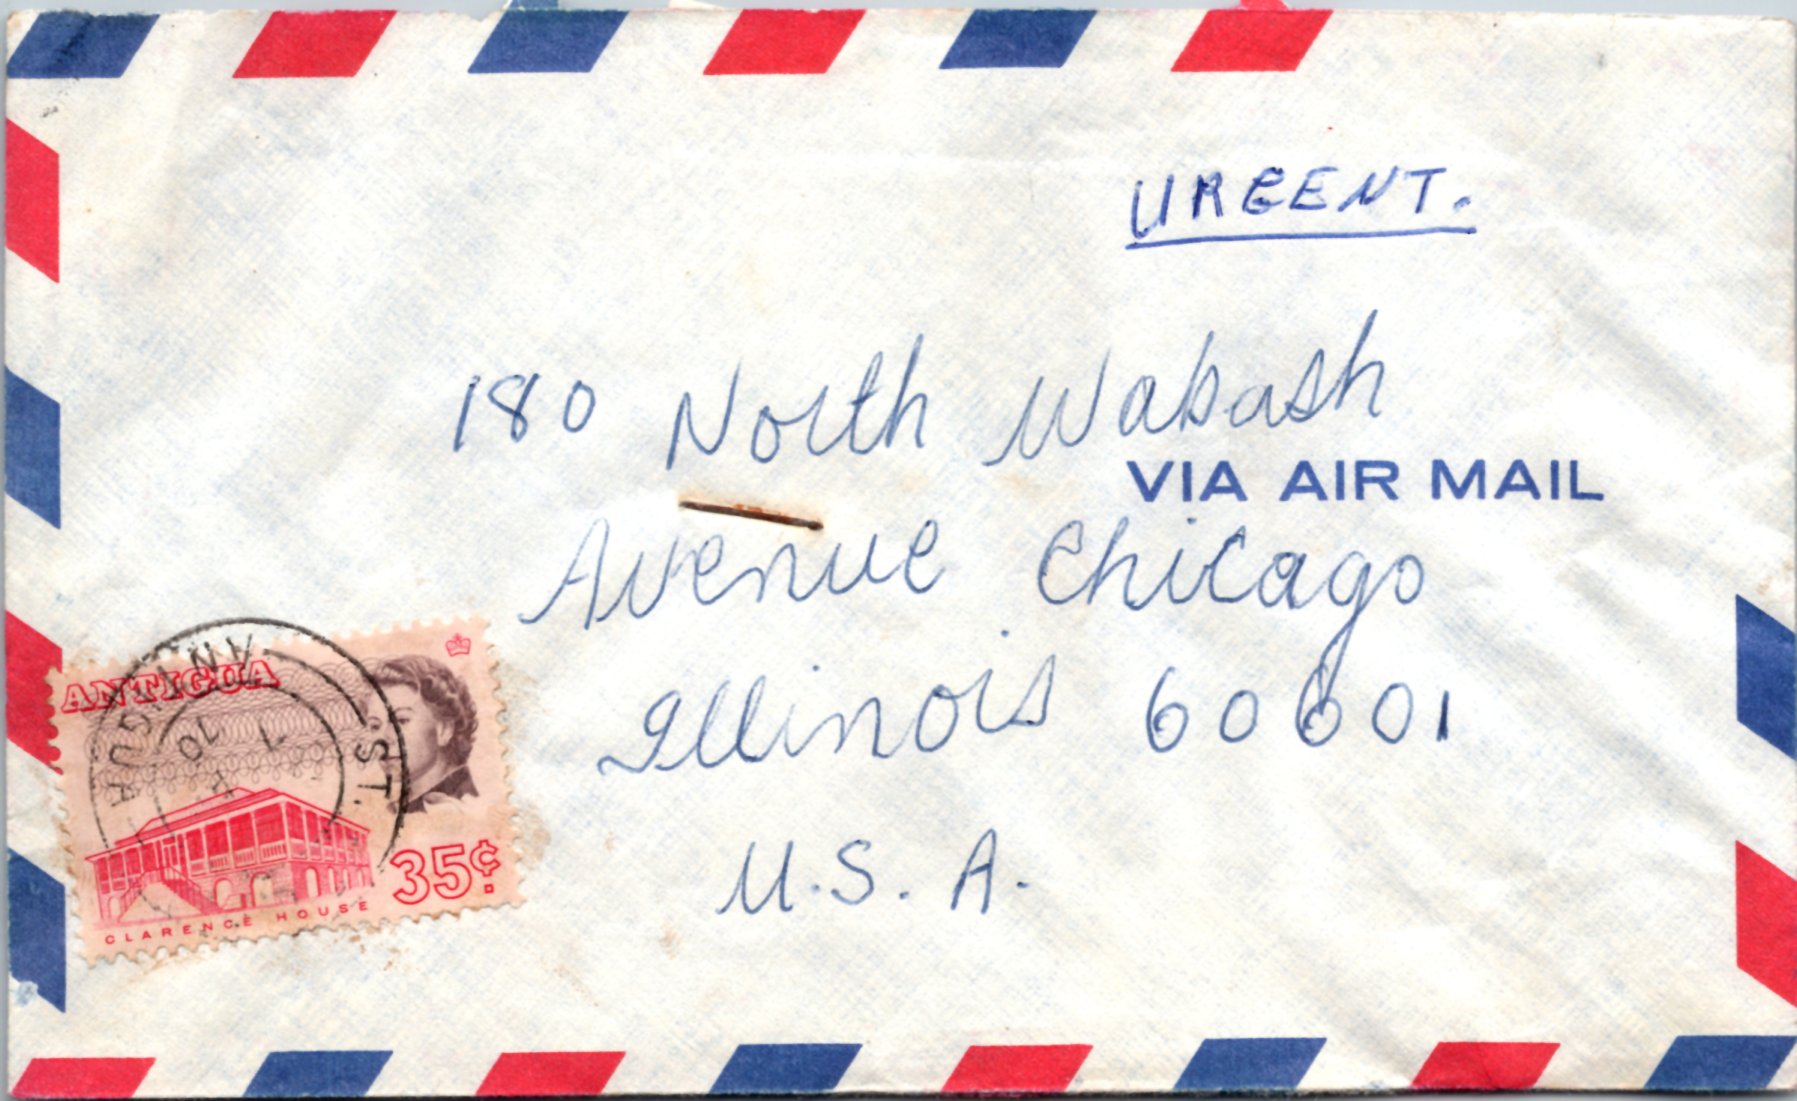 URGENT.
180 North Wabash
VIA AIR MAIL
Avenue Chicago
Illinois 60601
U.S.A.
ANTIGUA
35¢
CLARENCE HOUSE
ST.
ANTIGUA
10